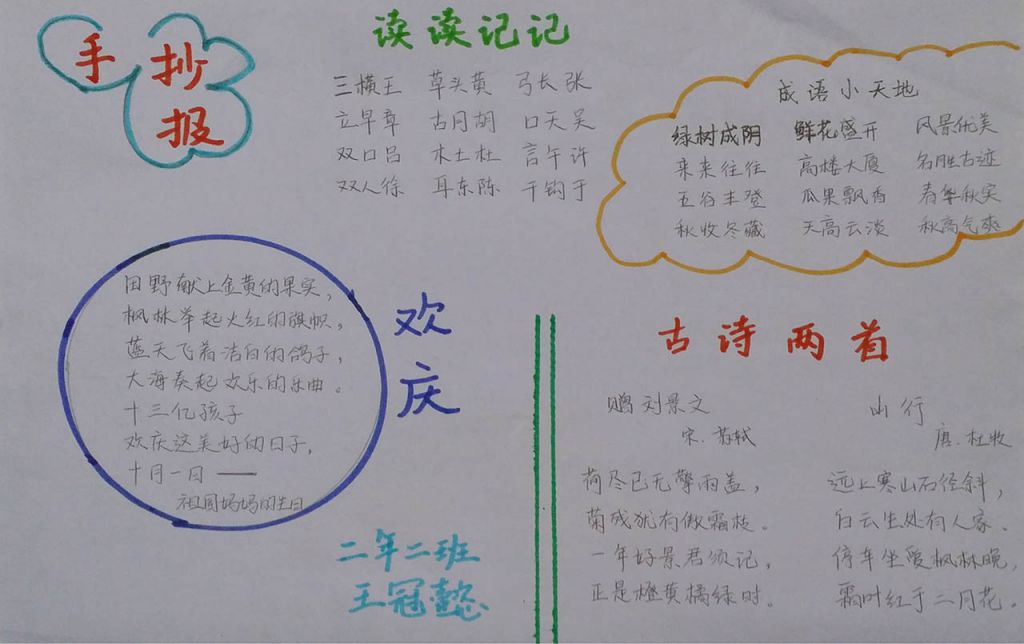 手抄报
读读记记
三横王 草头黄 弓长张
立早章 古月胡 口天吴
双口吕 木土杜 言午许
双人徐 耳东陈 干钩于
成语小天地
绿树成阴 鲜花盛开 风景优美
来来往往 高楼大厦 名胜古迹
五谷丰登 瓜果飘香 春华秋实
秋收冬藏 天高云淡 秋高气爽
田野献上金黄的果实，
枫林举起火红的旗帜，
蓝天飞着洁白的鸽子，
大海奏起欢乐的乐曲。
十三亿孩子
欢庆这美好的日子，
十月一日——
祖国妈妈的生日
欢庆
二年二班
王冠懿
古诗两首
赠刘景文
宋.苏轼
荷尽已无擎雨盖，
菊残犹有傲霜枝。
一年好景君须记，
正是橙黄橘绿时。
山行
唐.杜牧
远上寒山石径斜，
白云生处有人家。
停车坐爱枫林晚，
霜叶红于二月花。